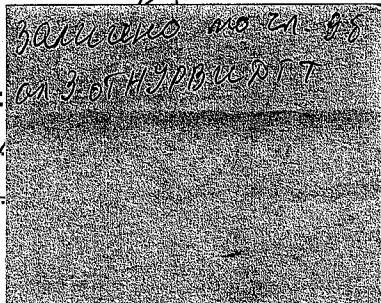 заличено по чл. 2б
ал. 2 от НУРВИДГТ